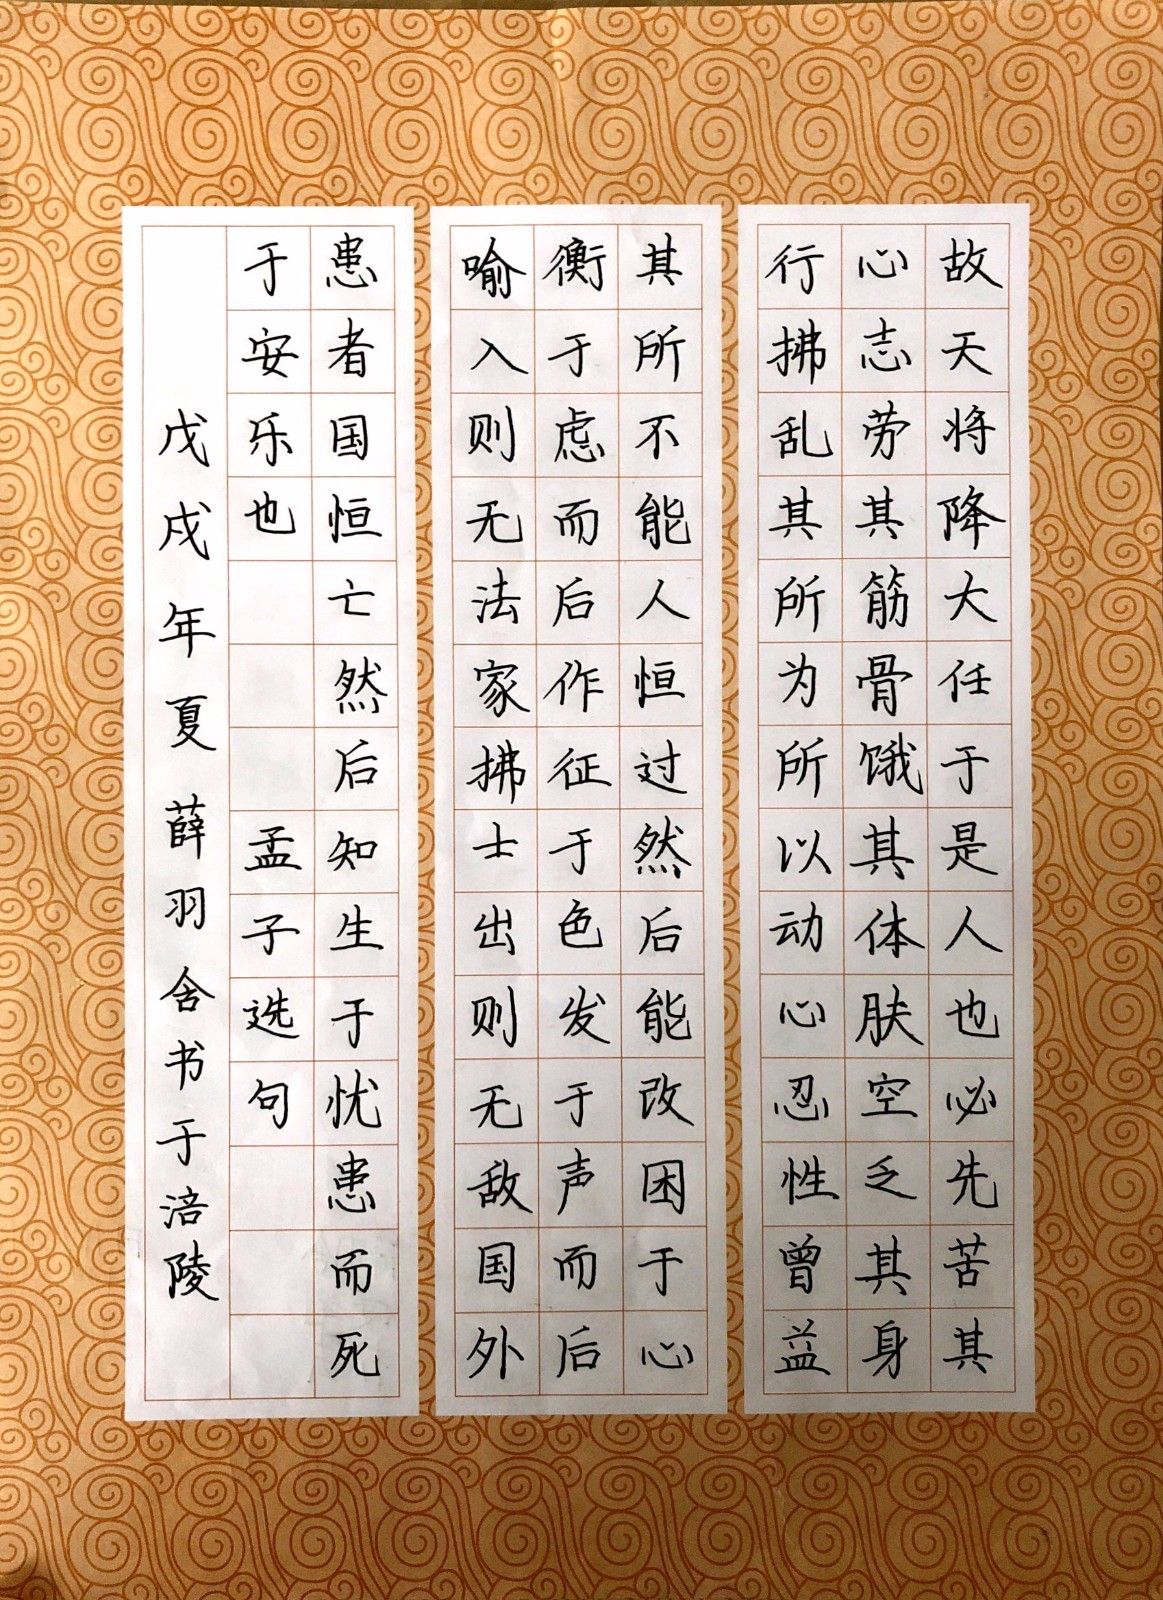 故天将降大任于是人也必先苦其
心志劳其筋骨饿其体肤空乏其身
行拂乱其所为所以动心忍性曾益
其所不能人恒过然后能改困于心
衡于虑而后作征于色发于声而后
喻入则无法家拂士出则无敌国外
患者国恒亡然后知生于忧患而死
于安乐也 孟子选句
戊戌年夏薛羽舍书于涪陵